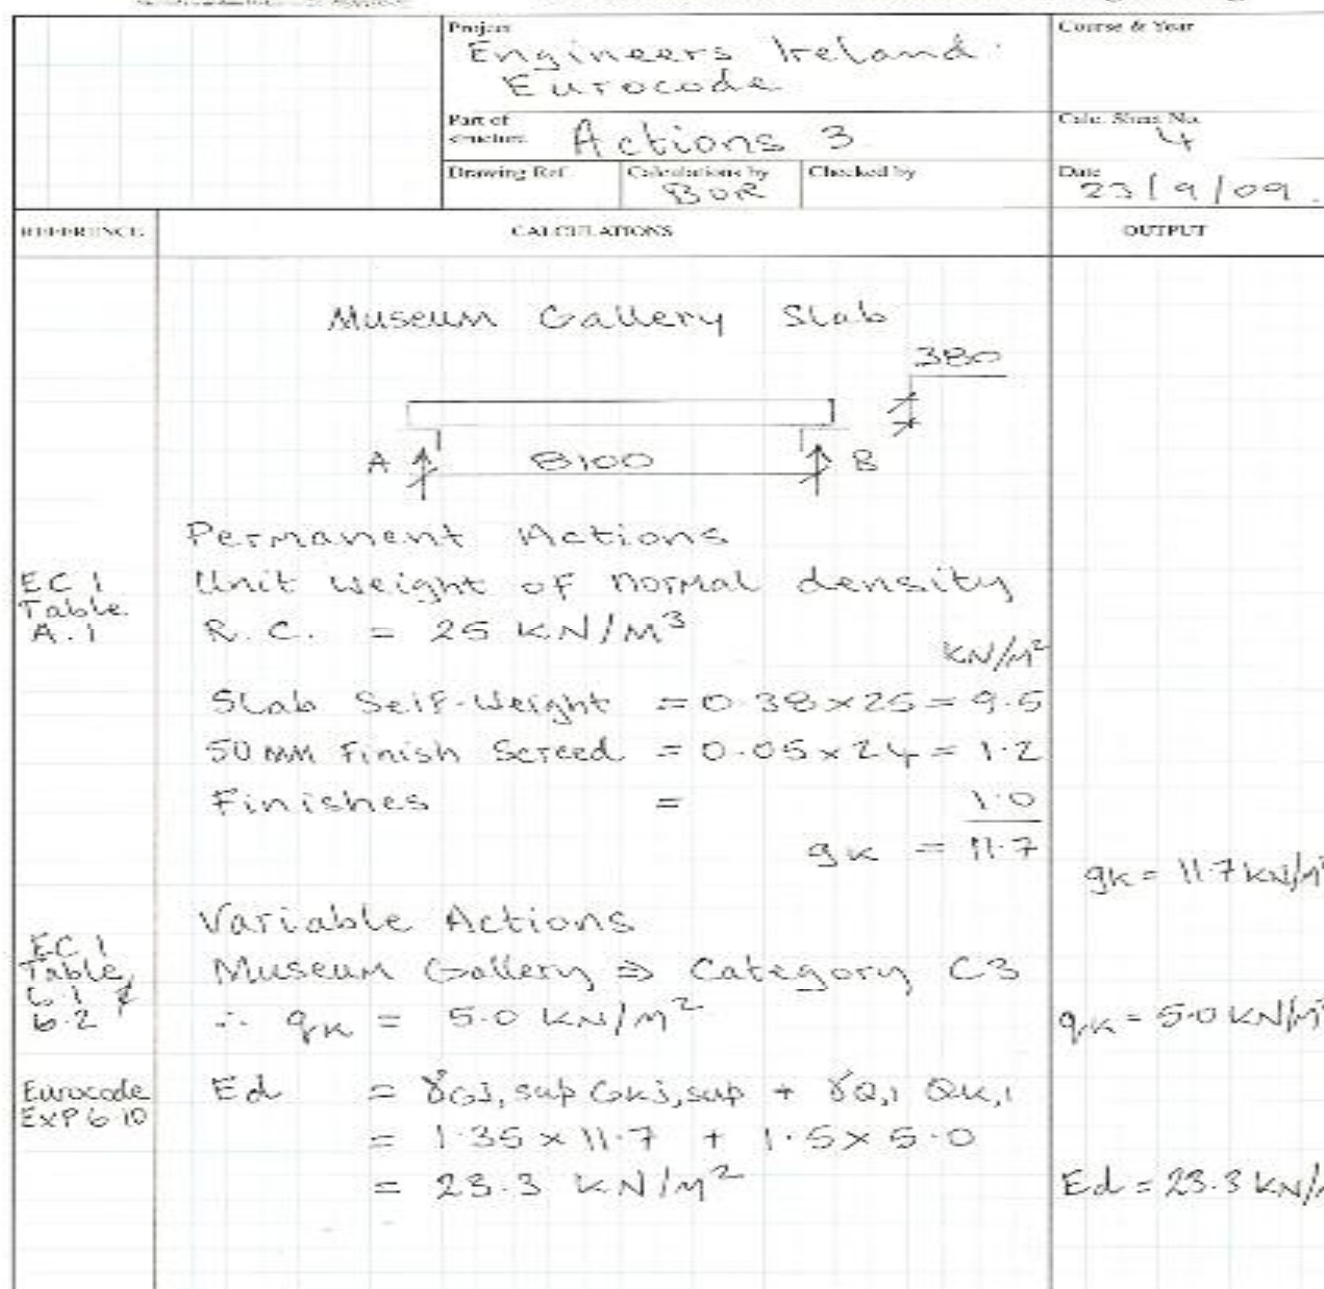 Project
Engineers Ireland
Eurocode
Course & Year
Part of structure
Actions 3
Calc. Sheet No.
4
Drawing Ref.
Calculations by
BOR
Checked by
Date
23/9/09.
REFERENCE
CALCULATIONS
OUTPUT
Museum Gallery Slab
380
A 8100 B
Permanent Actions
EC 1
Table
A.1
Unit weight of normal density
R.C. = 25 KN/M³
KN/M²
Slab Self-Weight = 0.38 x 25 = 9.5
50 MM Finish Screed = 0.05 x 24 = 1.2
Finishes = 1.0
gk = 11.7
gk = 11.7 KN/M²
Variable Actions
EC 1
Table
6.1 &
6.2
Museum Gallery ⇒ Category C3
∴ qk = 5.0 KN/M²
qk = 5.0 KN/M²
Eurocode
Exp 6.10
Ed = γGj,sup Gkj,sup + γQ,1 Qk,1
= 1.35 x 11.7 + 1.5 x 5.0
= 23.3 KN/M²
Ed = 23.3 KN/